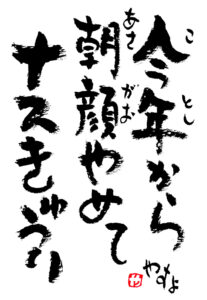 今年から
ことし
朝顔やめて
あさがお
ナスきゅうり
やすよ
や